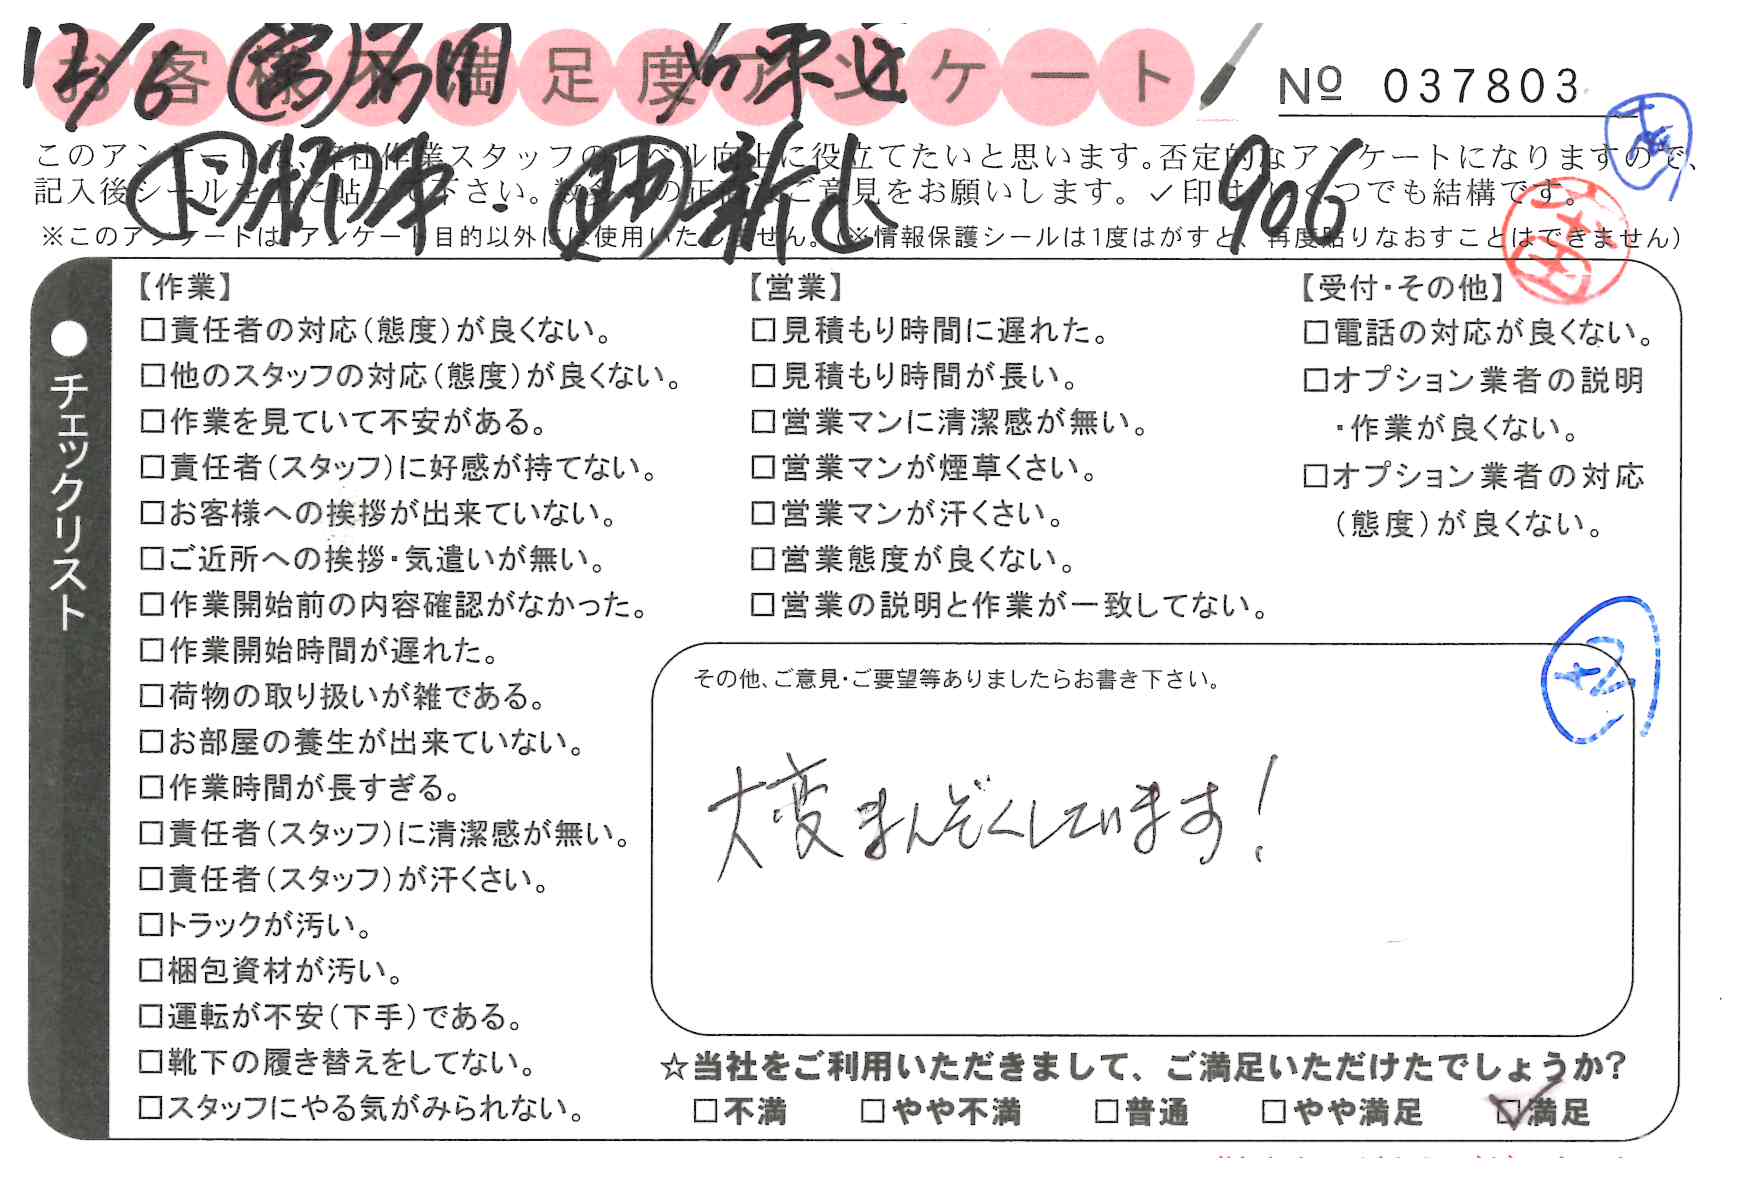 お客様不満足度アンケート
№ 037803
12/6
906
このアンケートは、弊社作業スタッフのレベル向上に役立てたいと思います。否定的なアンケートになりますので、
記入後シールを上に貼って下さい。数多くの正直なご意見をお願いします。✓印はいくつでも結構です。
※このアンケートは、アンケート目的以外には使用いたしません。(※情報保護シールは1度はがすと、再度貼りなおすことはできません)
●チェックリスト
【作業】
□責任者の対応(態度)が良くない。
□他のスタッフの対応(態度)が良くない。
□作業を見ていて不安がある。
□責任者(スタッフ)に好感が持てない。
□お客様への挨拶が出来ていない。
□ご近所への挨拶・気遣いが無い。
□作業開始前の内容確認がなかった。
□作業開始時間が遅れた。
□荷物の取り扱いが雑である。
□お部屋の養生が出来ていない。
□作業時間が長すぎる。
□責任者(スタッフ)に清潔感が無い。
□責任者(スタッフ)が汗くさい。
□トラックが汚い。
□梱包資材が汚い。
□運転が不安(下手)である。
□靴下の履き替えをしてない。
□スタッフにやる気がみられない。
【営業】
□見積もり時間に遅れた。
□見積もり時間が長い。
□営業マンに清潔感が無い。
□営業マンが煙草くさい。
□営業マンが汗くさい。
□営業態度が良くない。
□営業の説明と作業が一致してない。
【受付・その他】
□電話の対応が良くない。
□オプション業者の説明
・作業が良くない。
□オプション業者の対応
(態度)が良くない。
その他、ご意見・ご要望等ありましたらお書き下さい。
大変まんぞくしています!
☆当社をご利用いただきまして、ご満足いただけたでしょうか?
□不満 □やや不満 □普通 □やや満足 ☑満足